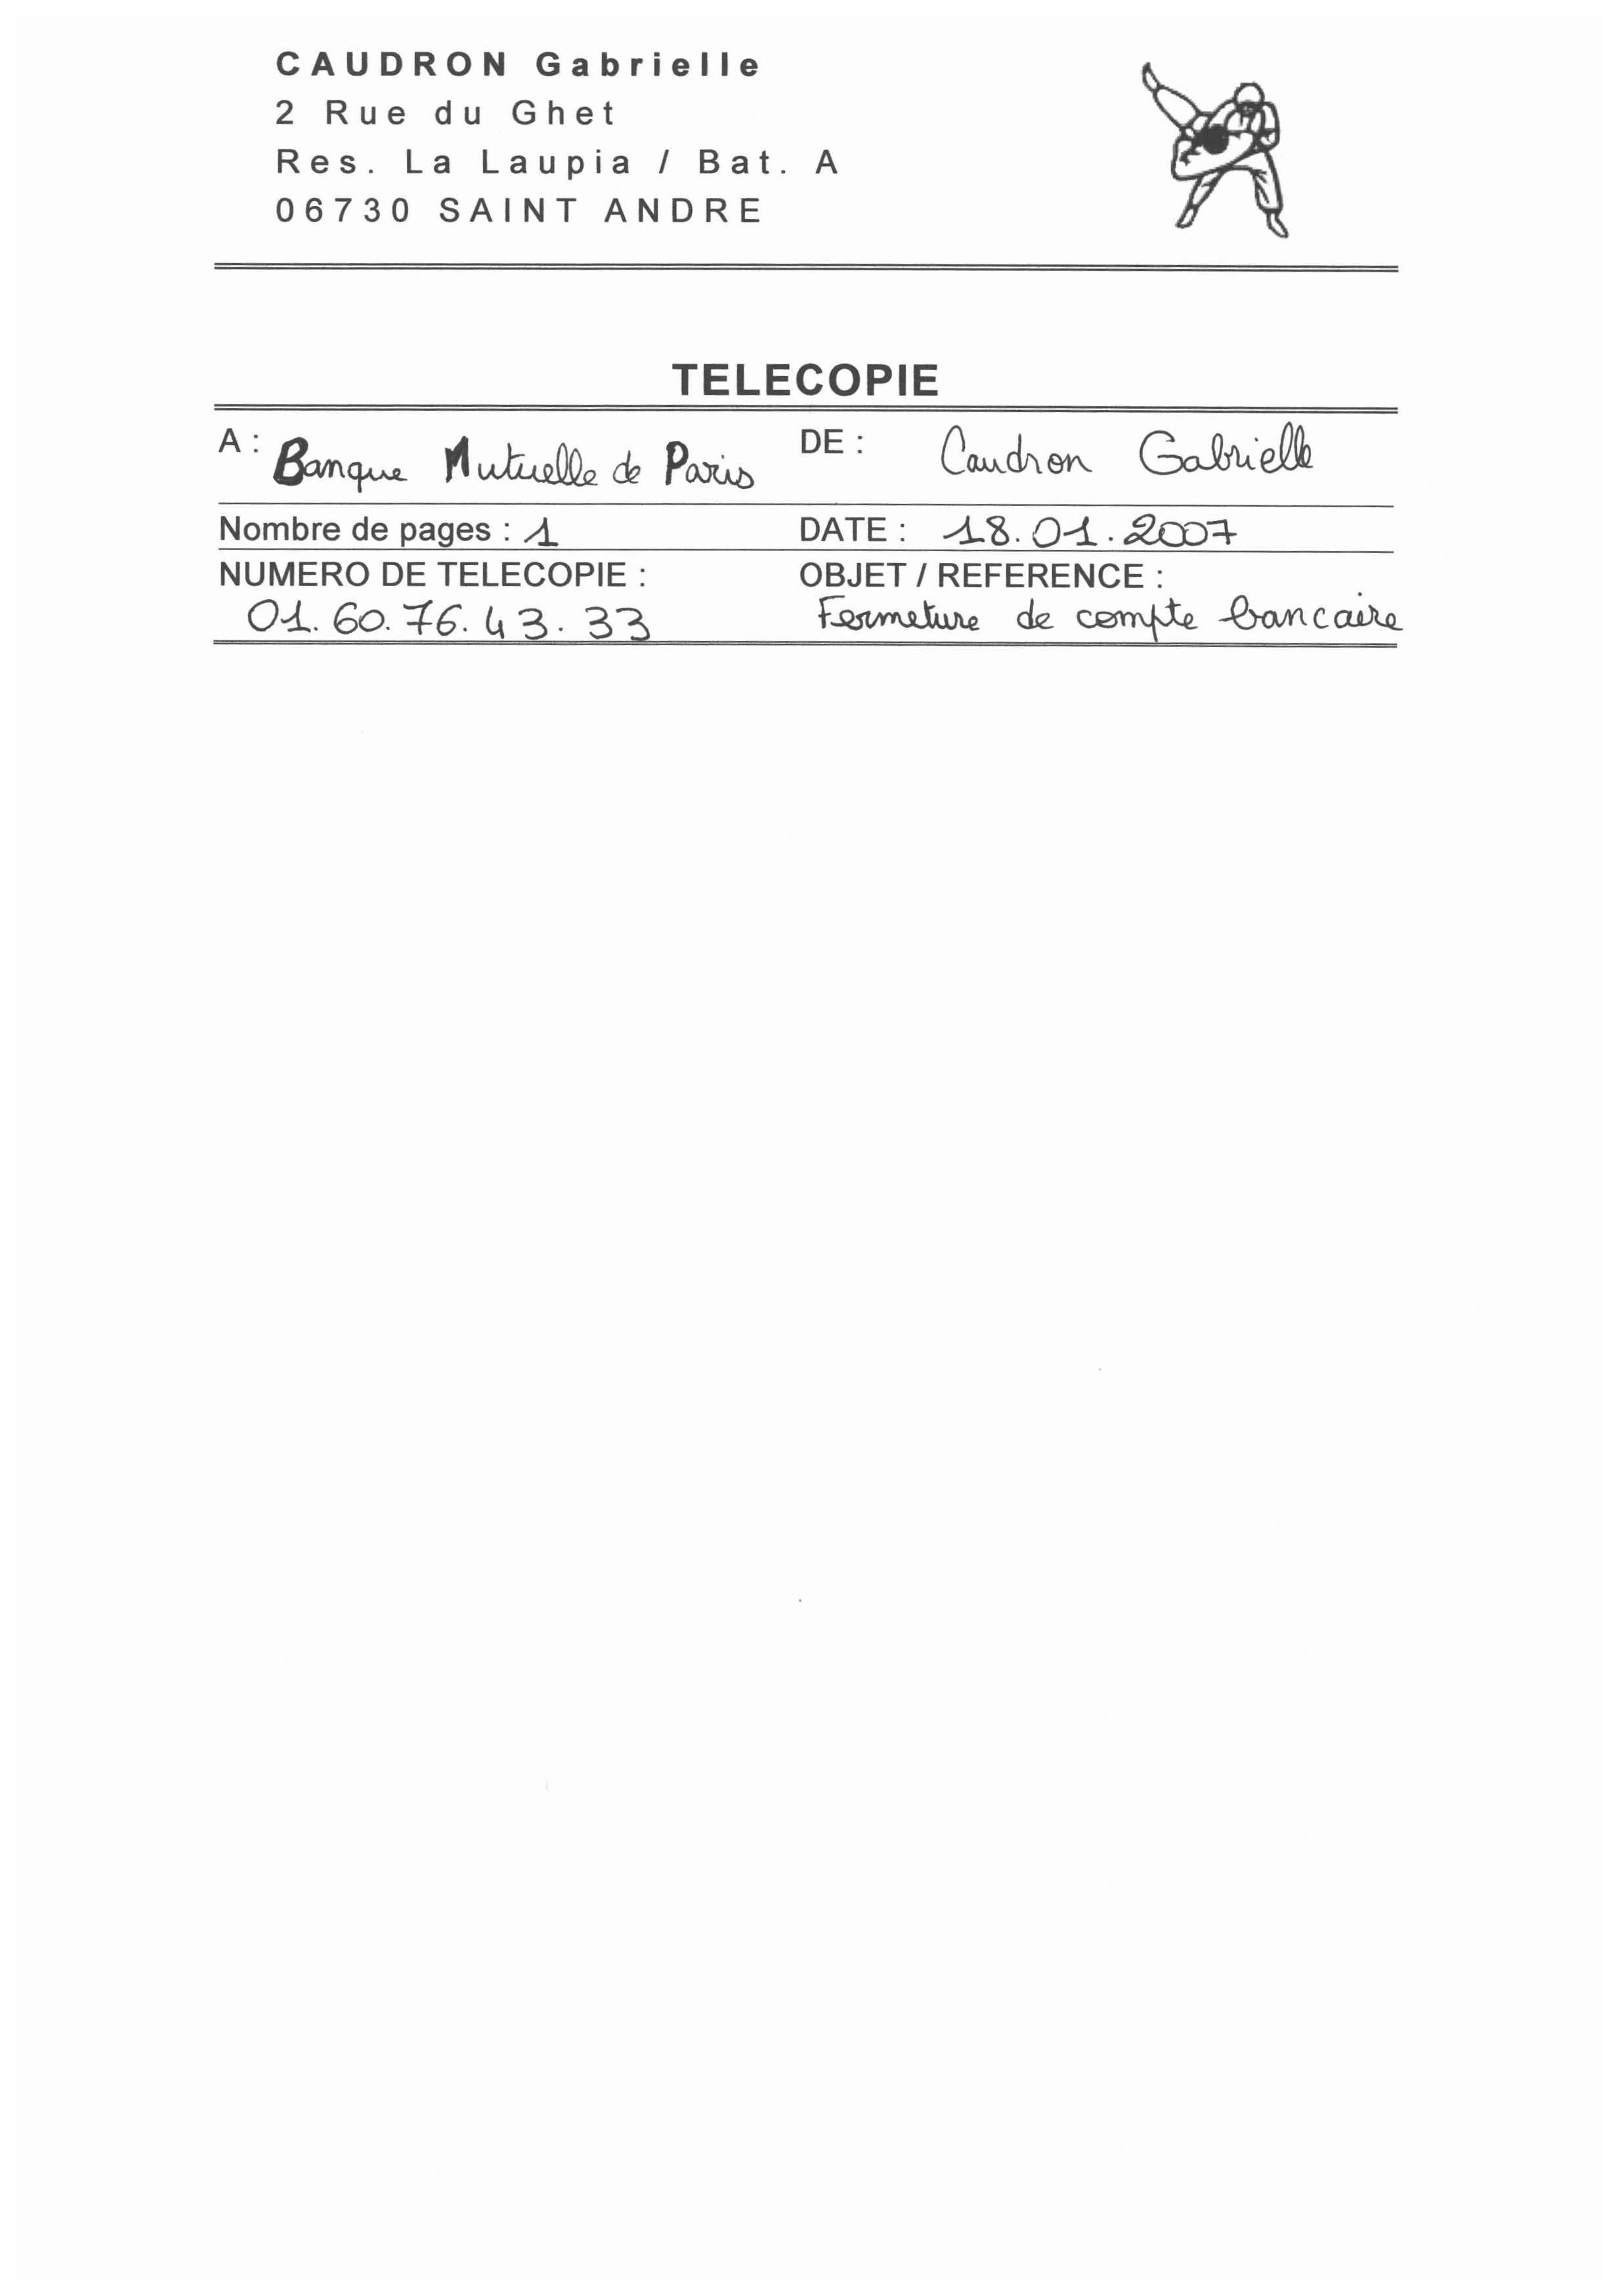 CAUDRON Gabrielle
2 Rue du Ghet
Res. La Laupia / Bat. A
06730 SAINT ANDRE
TELECOPIE
A : Banque Mutuelle de Paris DE : Caudron Gabrielle
Nombre de pages : 1 DATE : 18.01.2007
NUMERO DE TELECOPIE : OBJET / REFERENCE :
01.60.76.43.33 Fermeture de compte bancaire